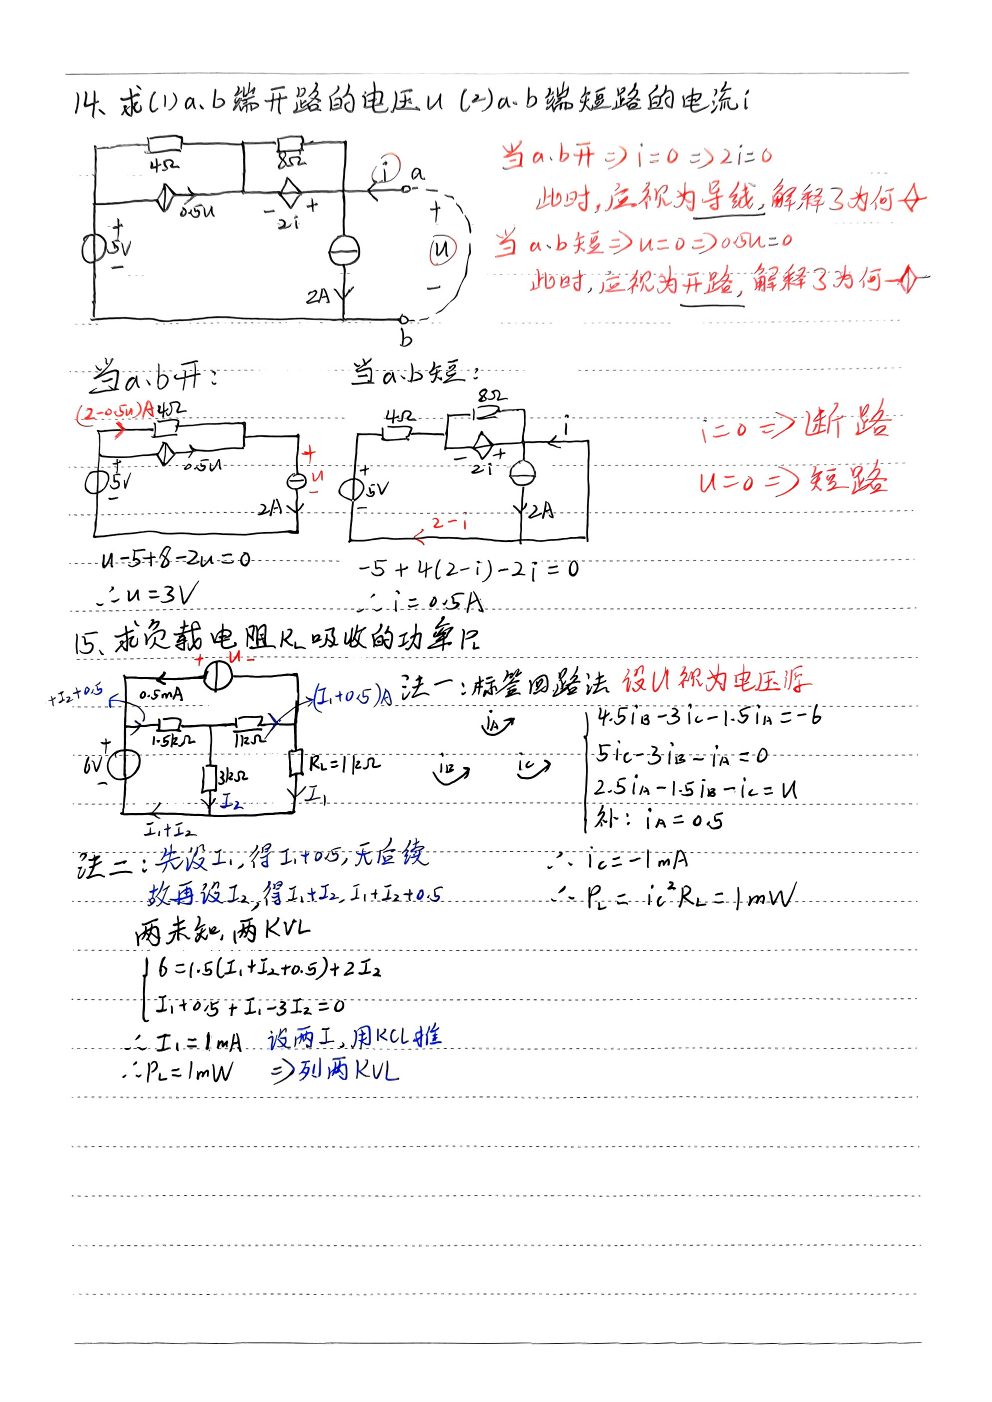 14、求(1)a、b端开路的电压u (2)a、b端短路的电流i
4Ω
8Ω
i
a
0.5u
- 2i +
+
5V
-
+
u
-
2A
b
当a、b开⇒i=0⇒2i=0
此时,应视为导线,解释了为何
当a、b短⇒u=0⇒0.5u=0
此时,应视为开路,解释了为何
当a、b开:
当a、b短:
(2-0.5u)A
4Ω
0.5u
+
5V
-
+
u
-
2A
u-5+8-2u=0
∴u=3V
8Ω
4Ω
i
- 2i +
+
5V
-
2A
2-i
-5+4(2-i)-2i=0
∴i=0.5A
i=0⇒断路
u=0⇒短路
15、求负载电阻RL吸收的功率PL
+ u -
0.5mA
+I₂+0.5
(I₁+0.5)A
1.5kΩ
1kΩ
+
6V
-
3kΩ
I₂
RL=1kΩ
I₁
I₁+I₂
法一:标签回路法 设U视为电压源
iA
iB
iC
4.5iB-3iC-1.5iA=-6
5iC-3iB-iA=0
2.5iA-1.5iB-iC=u
补:iA=0.5
∴iC=-1mA
∴PL=iC²RL=1mW
法二:先设I₁,得I₁+0.5,无后续
故再设I₂,得I₁+I₂,I₁+I₂+0.5
两未知,两KVL
6=1.5(I₁+I₂+0.5)+2I₂
I₁+0.5+I₁-3I₂=0
∴I₁=1mA 设两I,用KCL推
∴PL=1mW ⇒列两KVL